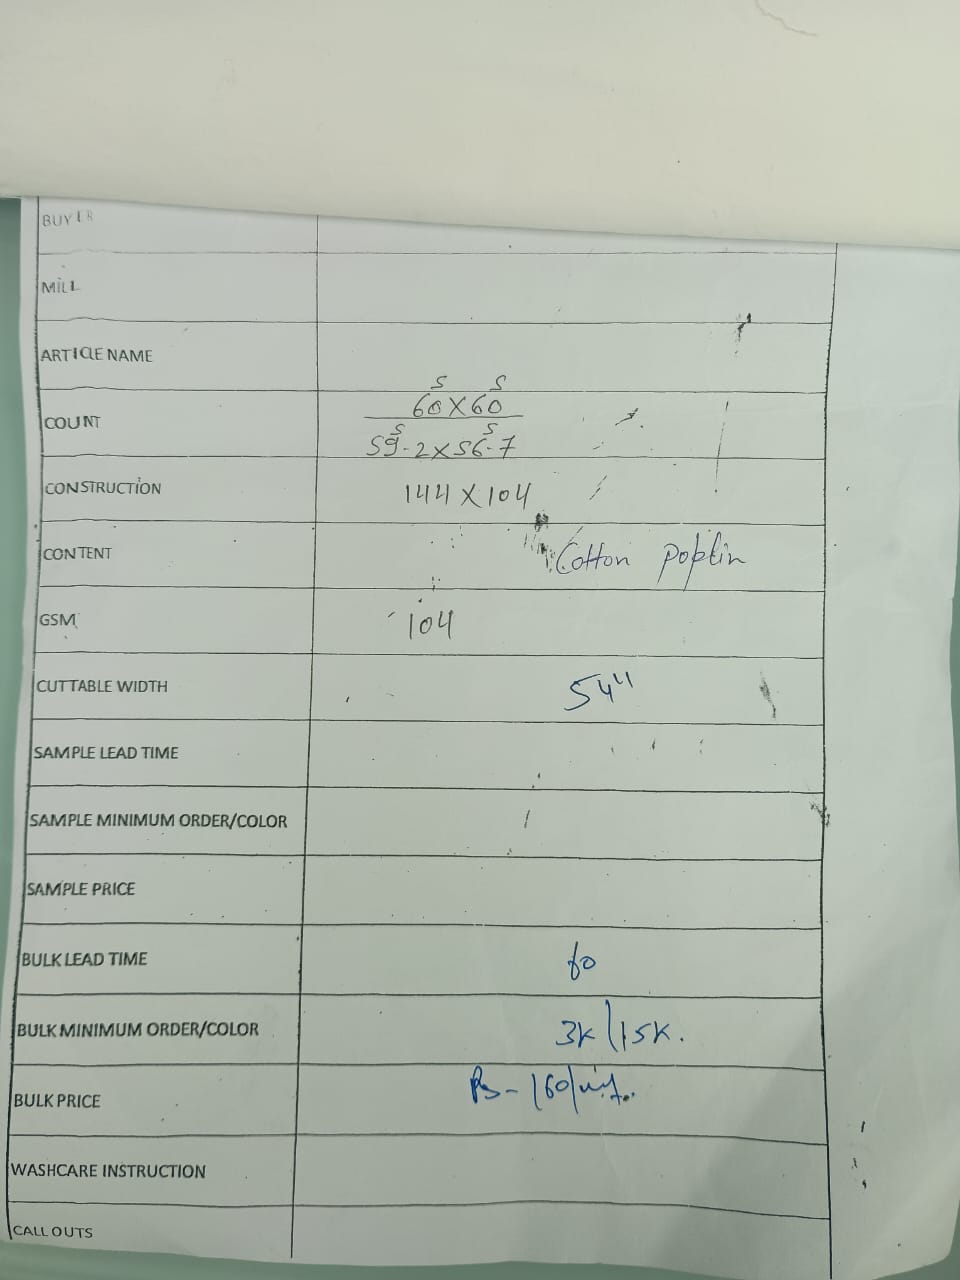 BUYER
MILL
ARTICLE NAME
COUNT 60s X 60s
59s.2 X 56s.7
CONSTRUCTION 144 X 104
CONTENT Cotton poplin
GSM 104
CUTTABLE WIDTH 54"
SAMPLE LEAD TIME
SAMPLE MINIMUM ORDER/COLOR
SAMPLE PRICE
BULK LEAD TIME 60
BULK MINIMUM ORDER/COLOR 3K/15K.
BULK PRICE Rs-160/
WASHCARE INSTRUCTION
CALL OUTS